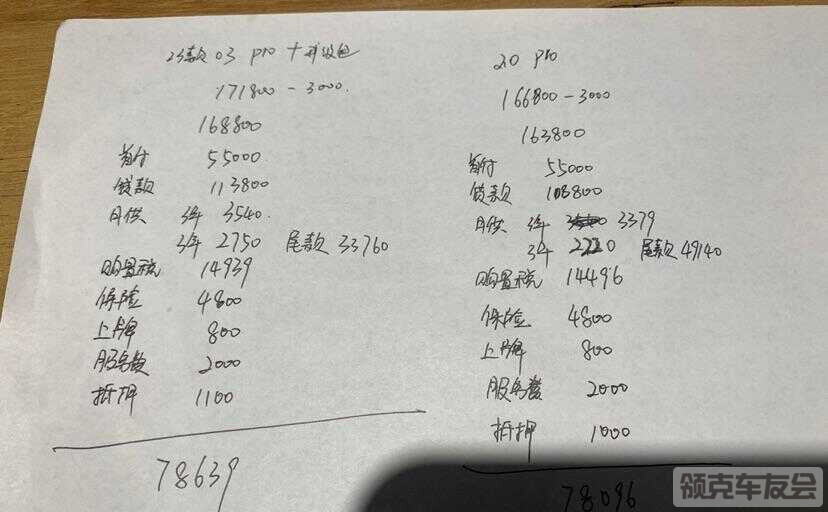 23款 03 pro + 开发包
171800 - 3000.
168800
首付 55000.
贷款 113800
月供 3年 3540.
3年 2750 尾款 33760
购置税 14939
保险 4800
上牌 800
服务费 2000
抵押 1100
78639
20 pro
166800 - 3000
163800
首付 55000
贷款 108800
月供 3年 3379
3年 2220 尾款 49140
购置税 14496
保险 4800
上牌 800
服务费 2000
抵押 1000
78096
领克车友会